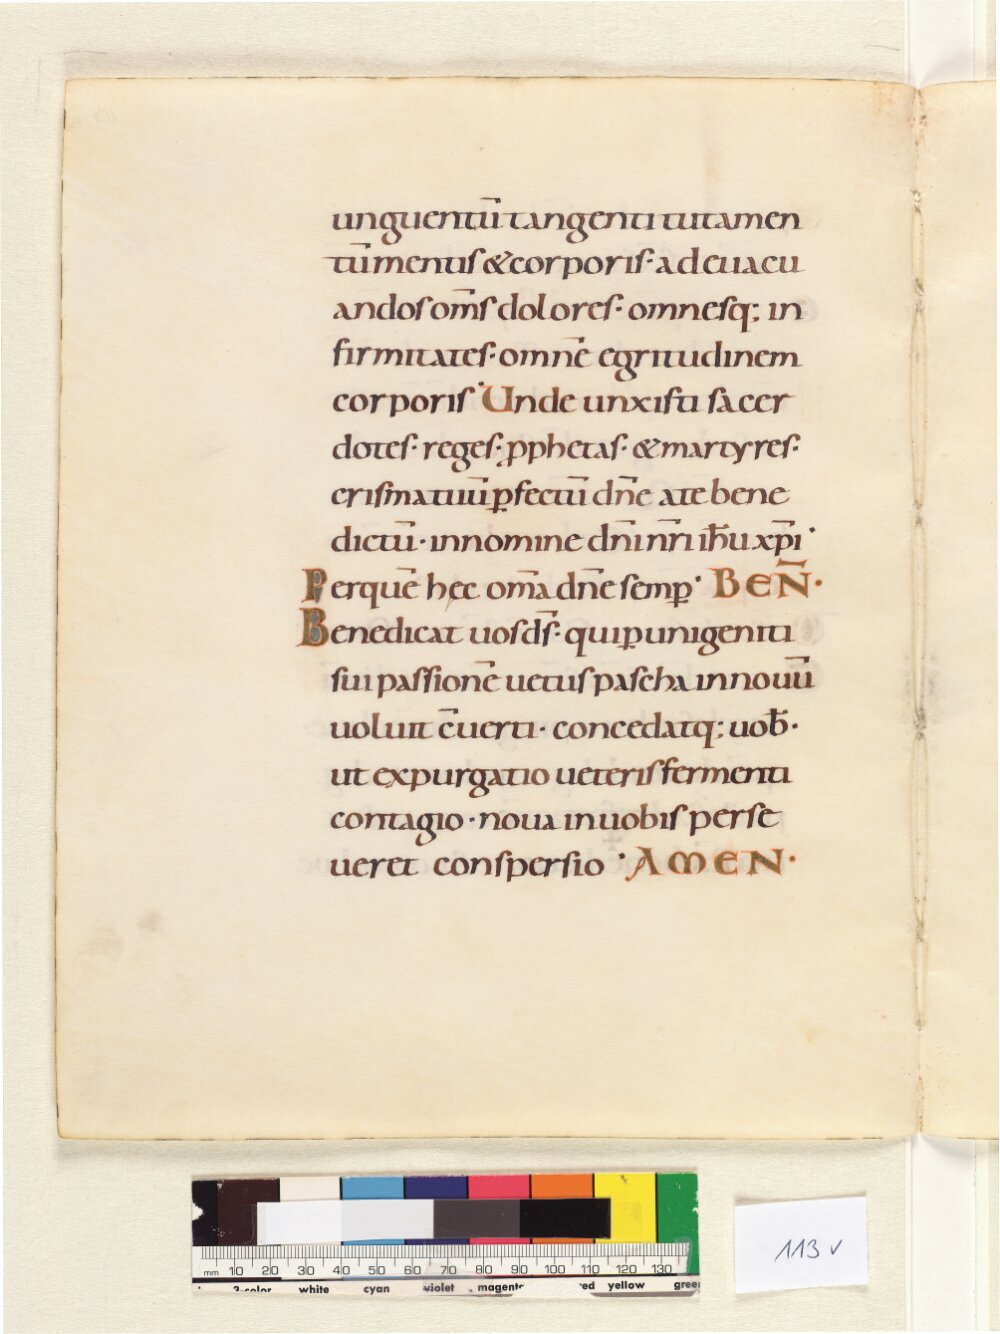 unguentū tangenti tutamen
tū mentis & corporis· ad euacu
andos om̄s dolores· omnesq; in
firmitates· omnē egritudinem
corporis· Unde unxisti sacer
dotes· reges· ꝓphetas· & martyres·
crisma tuū ꝑfectū dn̄e a te bene
dictū· in nomine dn̄i nr̄i ih̄u xp̄i·
Per quē hęc om̄a dn̄e semꝑ· BEN̄·
Benedicat uos ds̄· qui ꝑ unigeniti
sui passionē uetus pascha in nouū
uoluit c̄uerti· concedatq; uob̄·
ut expurgatio ueteris fermenti
contagio· noua in uobis perse
ueret conspersio· AMEN·
mm 10 20 30 40 50 60 70 80 90 100 110 120 130
3-color white cyan violet magenta red yellow green
113 v